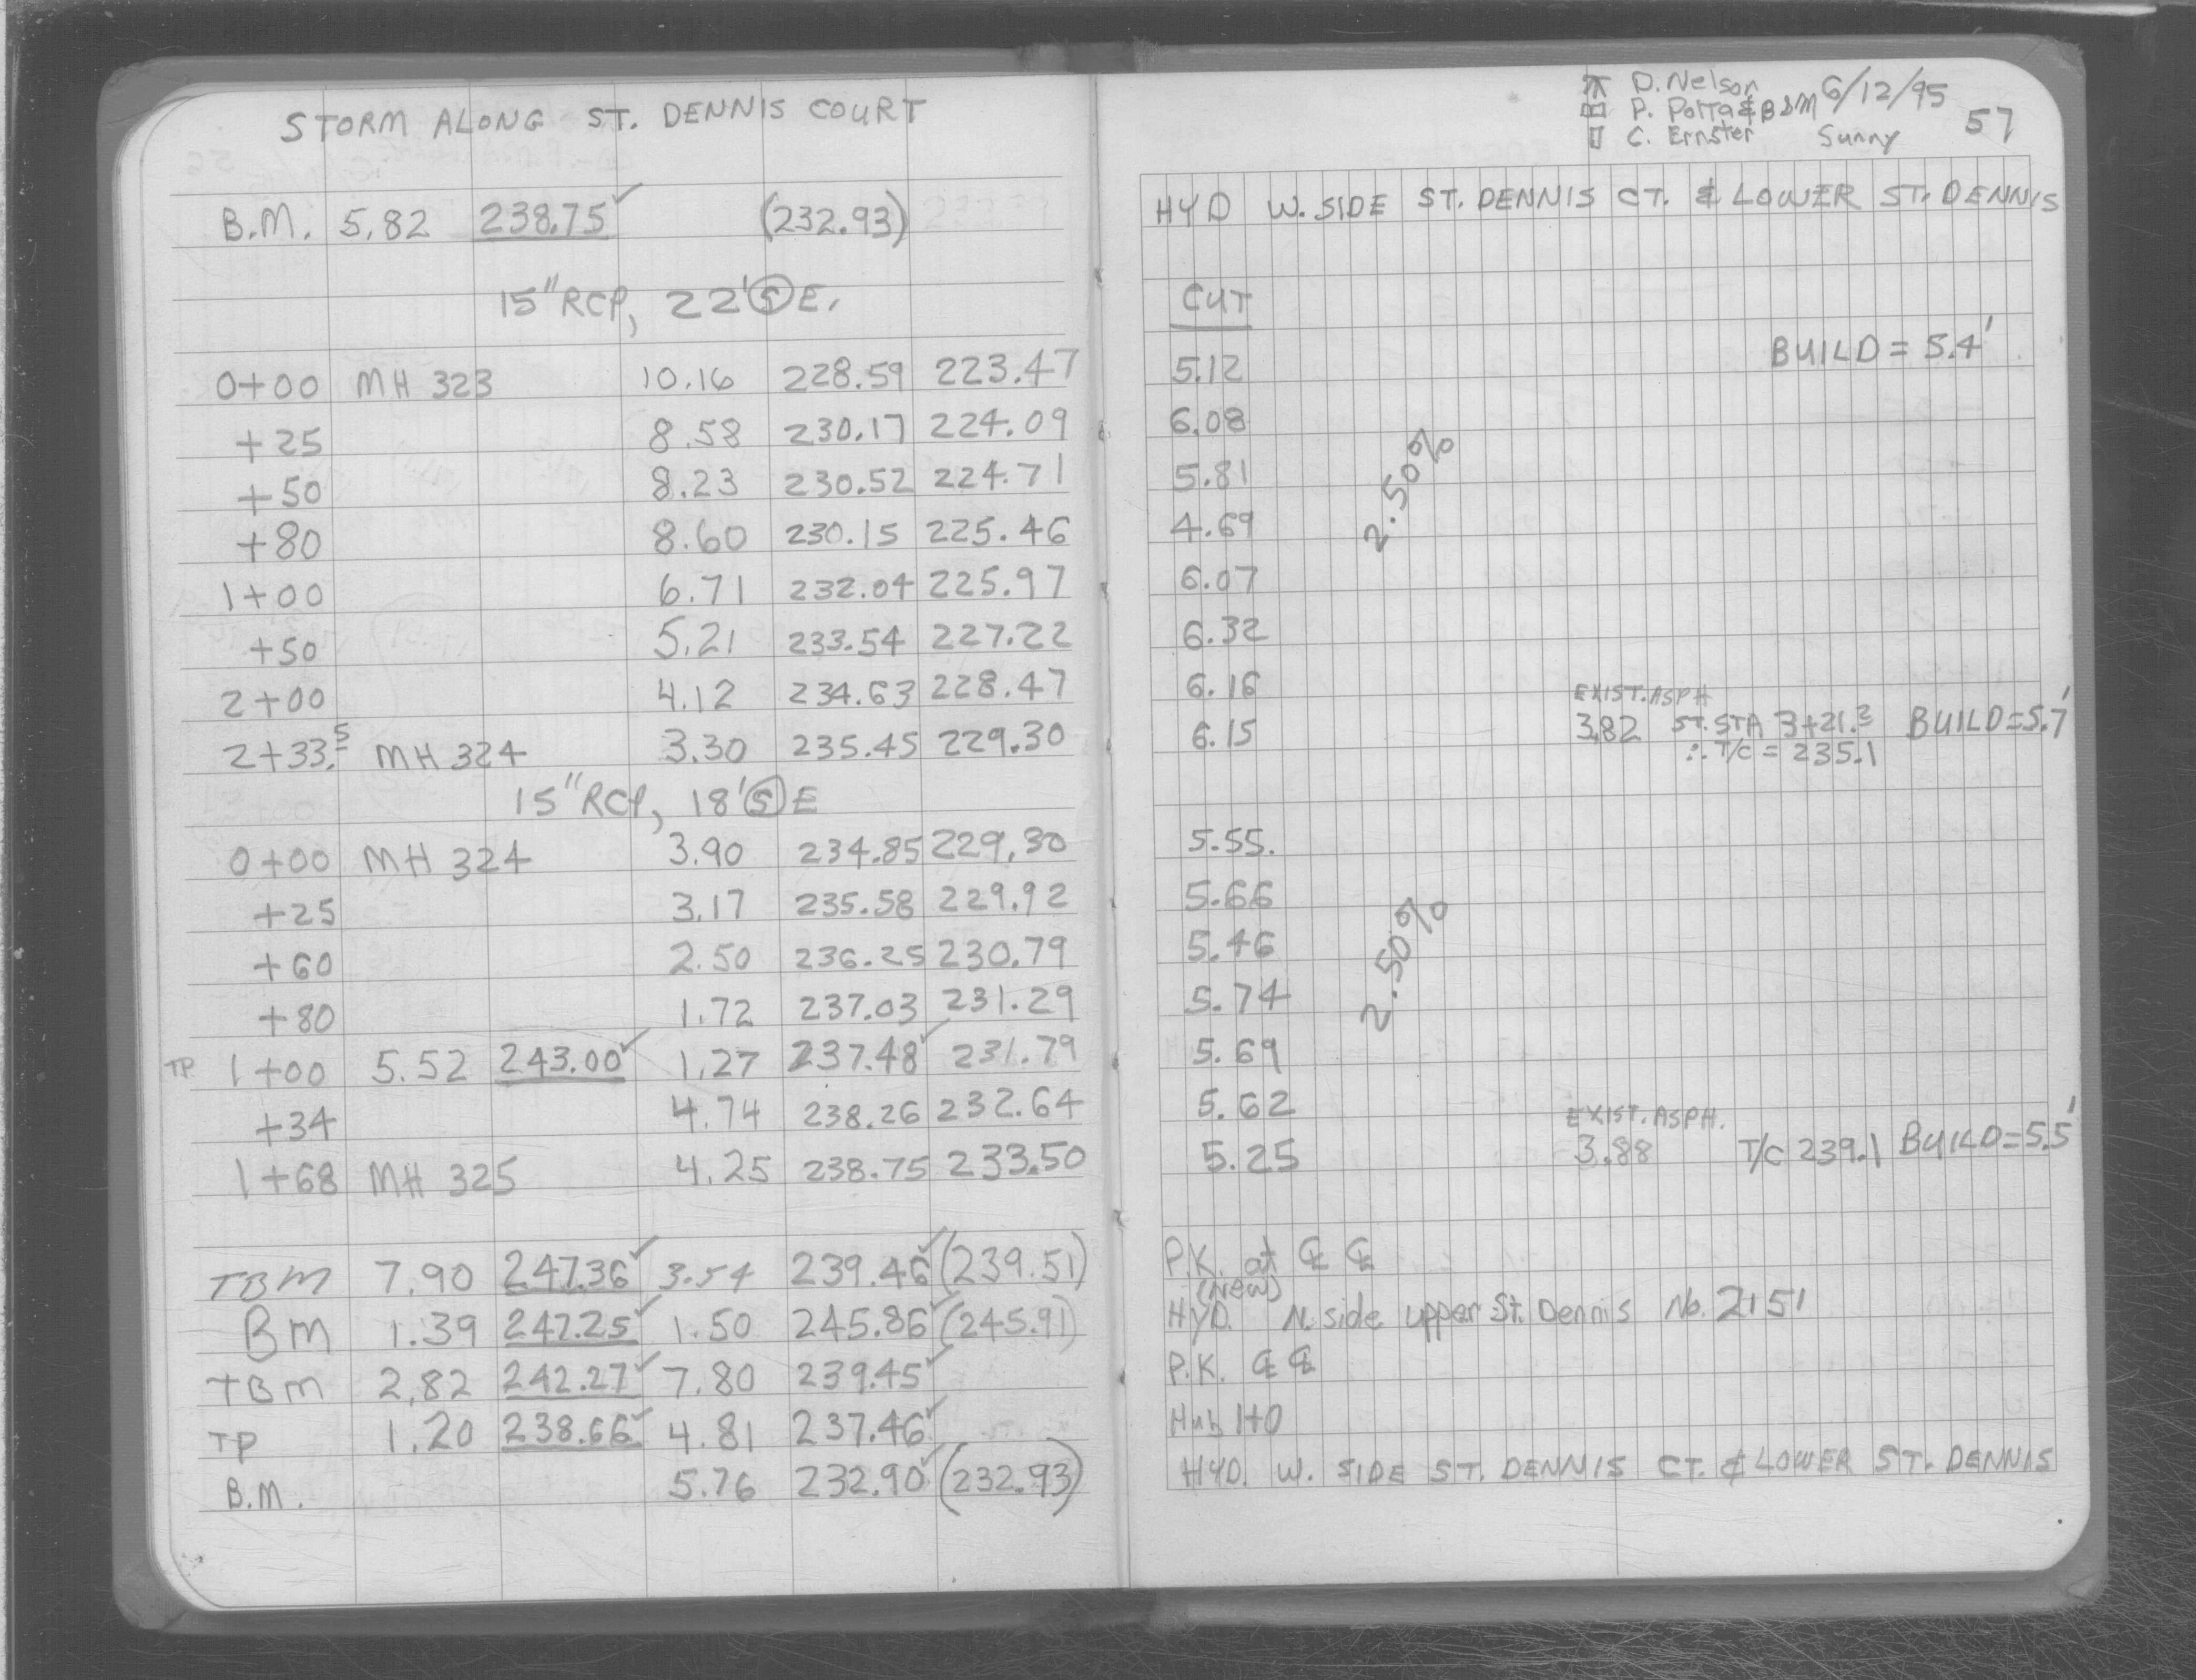 STORM ALONG ST. DENNIS COURT
B.M. 5.82 238.75✓ (232.93)
15"RCP, 22'Ⓢ E.
0+00 MH 323 10.16 228.59 223.47
+25 8.58 230.17 224.09
+50 8.23 230.52 224.71
+80 8.60 230.15 225.46
1+00 6.71 232.04 225.97
+50 5.21 233.54 227.22
2+00 4.12 234.63 228.47
2+33.5 MH 324 3.30 235.45 229.30
15"RCP, 18'Ⓢ E
0+00 MH 324 3.90 234.85 229.30
+25 3.17 235.58 229.92
+60 2.50 236.25 230.79
+80 1.72 237.03 231.29
TP 1+00 5.52 243.00✓ 1.27 237.48✓ 231.79
+34 4.74 238.26 232.64
1+68 MH 325 4.25 238.75 233.50
TBM 7.90 247.36✓ 3.54 239.46✓ (239.51)
BM 1.39 247.25✓ 1.50 245.86✓ (245.91)
TBM 2.82 242.27✓ 7.80 239.45✓
TP 1.20 238.66✓ 4.81 237.46✓
B.M. 5.76 232.90✓ (232.93)
D. Nelson 6/12/95
P. Porra & BSM 57
C. Ernster Sunny
HYD W. SIDE ST. DENNIS CT. & LOWER ST. DENNIS
CUT
5.12 BUILD = 5.4'
6.08
5.81
4.69
2.50%
6.07
6.32
6.16
EXIST. ASPH
6.15 3.82 ST. STA 3+21.3 BUILD=5.7'
∴ T/C = 235.1
5.55.
5.66
5.46
5.74
2.50%
5.69
5.62
EXIST. ASPH.
5.25 3.88 T/C 239.1 BUILD=5.5'
P.K. at ℄ ℄
(New)
HYD. N. side upper St. Dennis No. 2151
P.K. ℄ ℄
Hub 1+0
HYD. W. SIDE ST. DENNIS CT. & LOWER ST. DENNIS